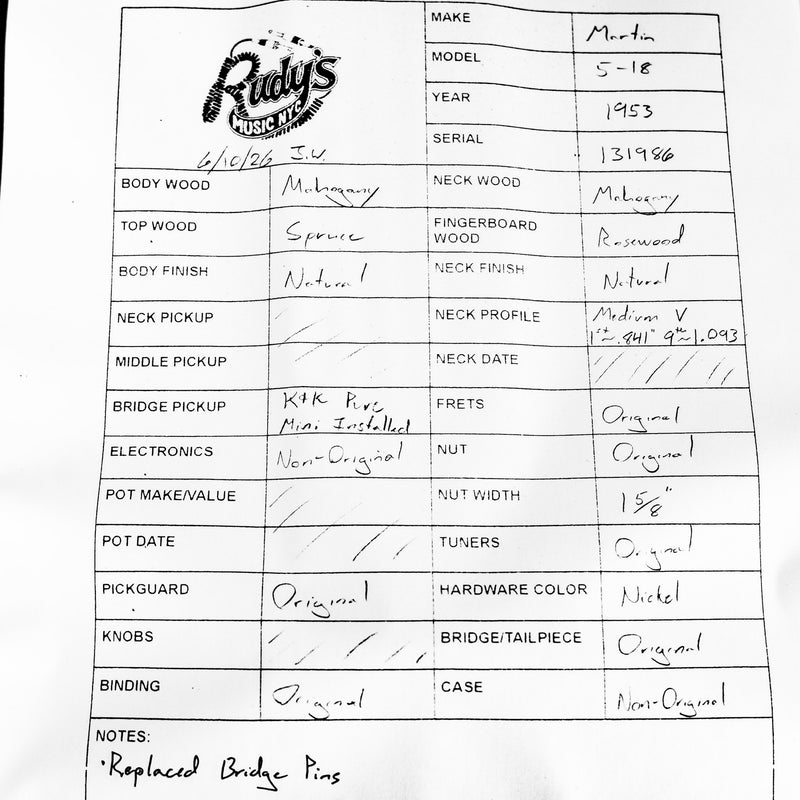 Rudy's
MUSIC NYC
6/10/26 J.W.
MAKE Martin
MODEL 5-18
YEAR 1953
SERIAL 131986
BODY WOOD Mahogany NECK WOOD Mahogany
TOP WOOD Spruce FINGERBOARD WOOD Rosewood
BODY FINISH Natural NECK FINISH Natural
NECK PICKUP NECK PROFILE Medium V
1st ~ .841" 9th ~ 1.093
MIDDLE PICKUP NECK DATE
BRIDGE PICKUP K+K Pure
Mini Installed FRETS Original
ELECTRONICS Non-Original NUT Original
POT MAKE/VALUE NUT WIDTH 1 5/8"
POT DATE TUNERS Original
PICKGUARD Original HARDWARE COLOR Nickel
KNOBS BRIDGE/TAILPIECE Original
BINDING Original CASE Non-Original
NOTES:
·Replaced Bridge Pins